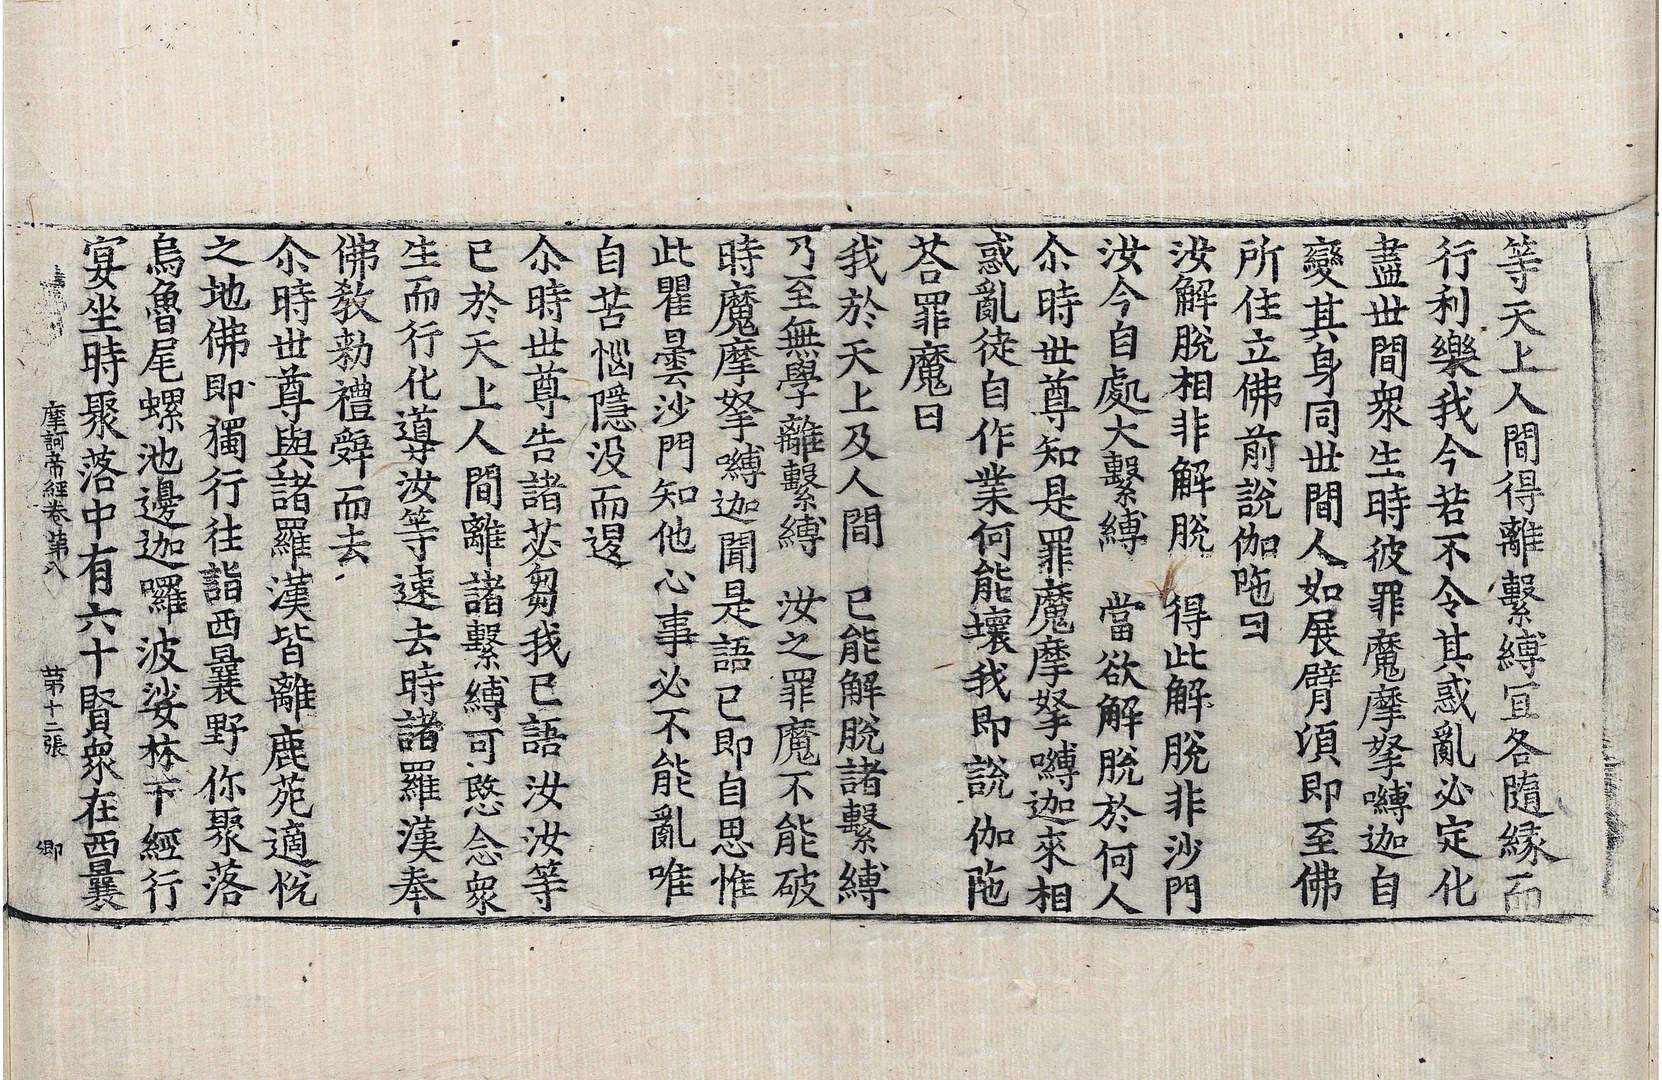 等天上人間得離繫縛宜各隨緣而
行利樂我今若不令其惑亂必定化
盡世間衆生時彼罪魔摩拏嚩迦自
變其身同世間人如展臂湏即至佛
所住立佛前說伽陁曰
汝解脫相非解脫　得此解脫非沙門
汝今自處大繫縛　當欲解脫於何人
尒時世尊知是罪魔摩拏嚩迦來相
惑亂徒自作業何能壞我即說伽陁
荅罪魔曰
我於天上及人間　已能解脫諸繫縛
乃至無學離繫縛　汝之罪魔不能破
時魔摩拏嚩迦聞是語已即自思惟
此瞿曇沙門知他心事必不能亂唯
自苦惱隱没而退
尒時世尊告諸苾芻我已語汝汝等
已於天上人間離諸繫縛可愍念衆
生而行化導汝等速去時諸羅漢奉
佛教勑禮辤而去
尒時世尊與諸羅漢皆離鹿苑適悅
之地佛即獨行往詣西曩野你聚落
烏魯尾螺池邊迦囉波娑林下經行
宴坐時聚落中有六十賢衆在西曩
摩訶帝經卷第八　第十二張　鄉